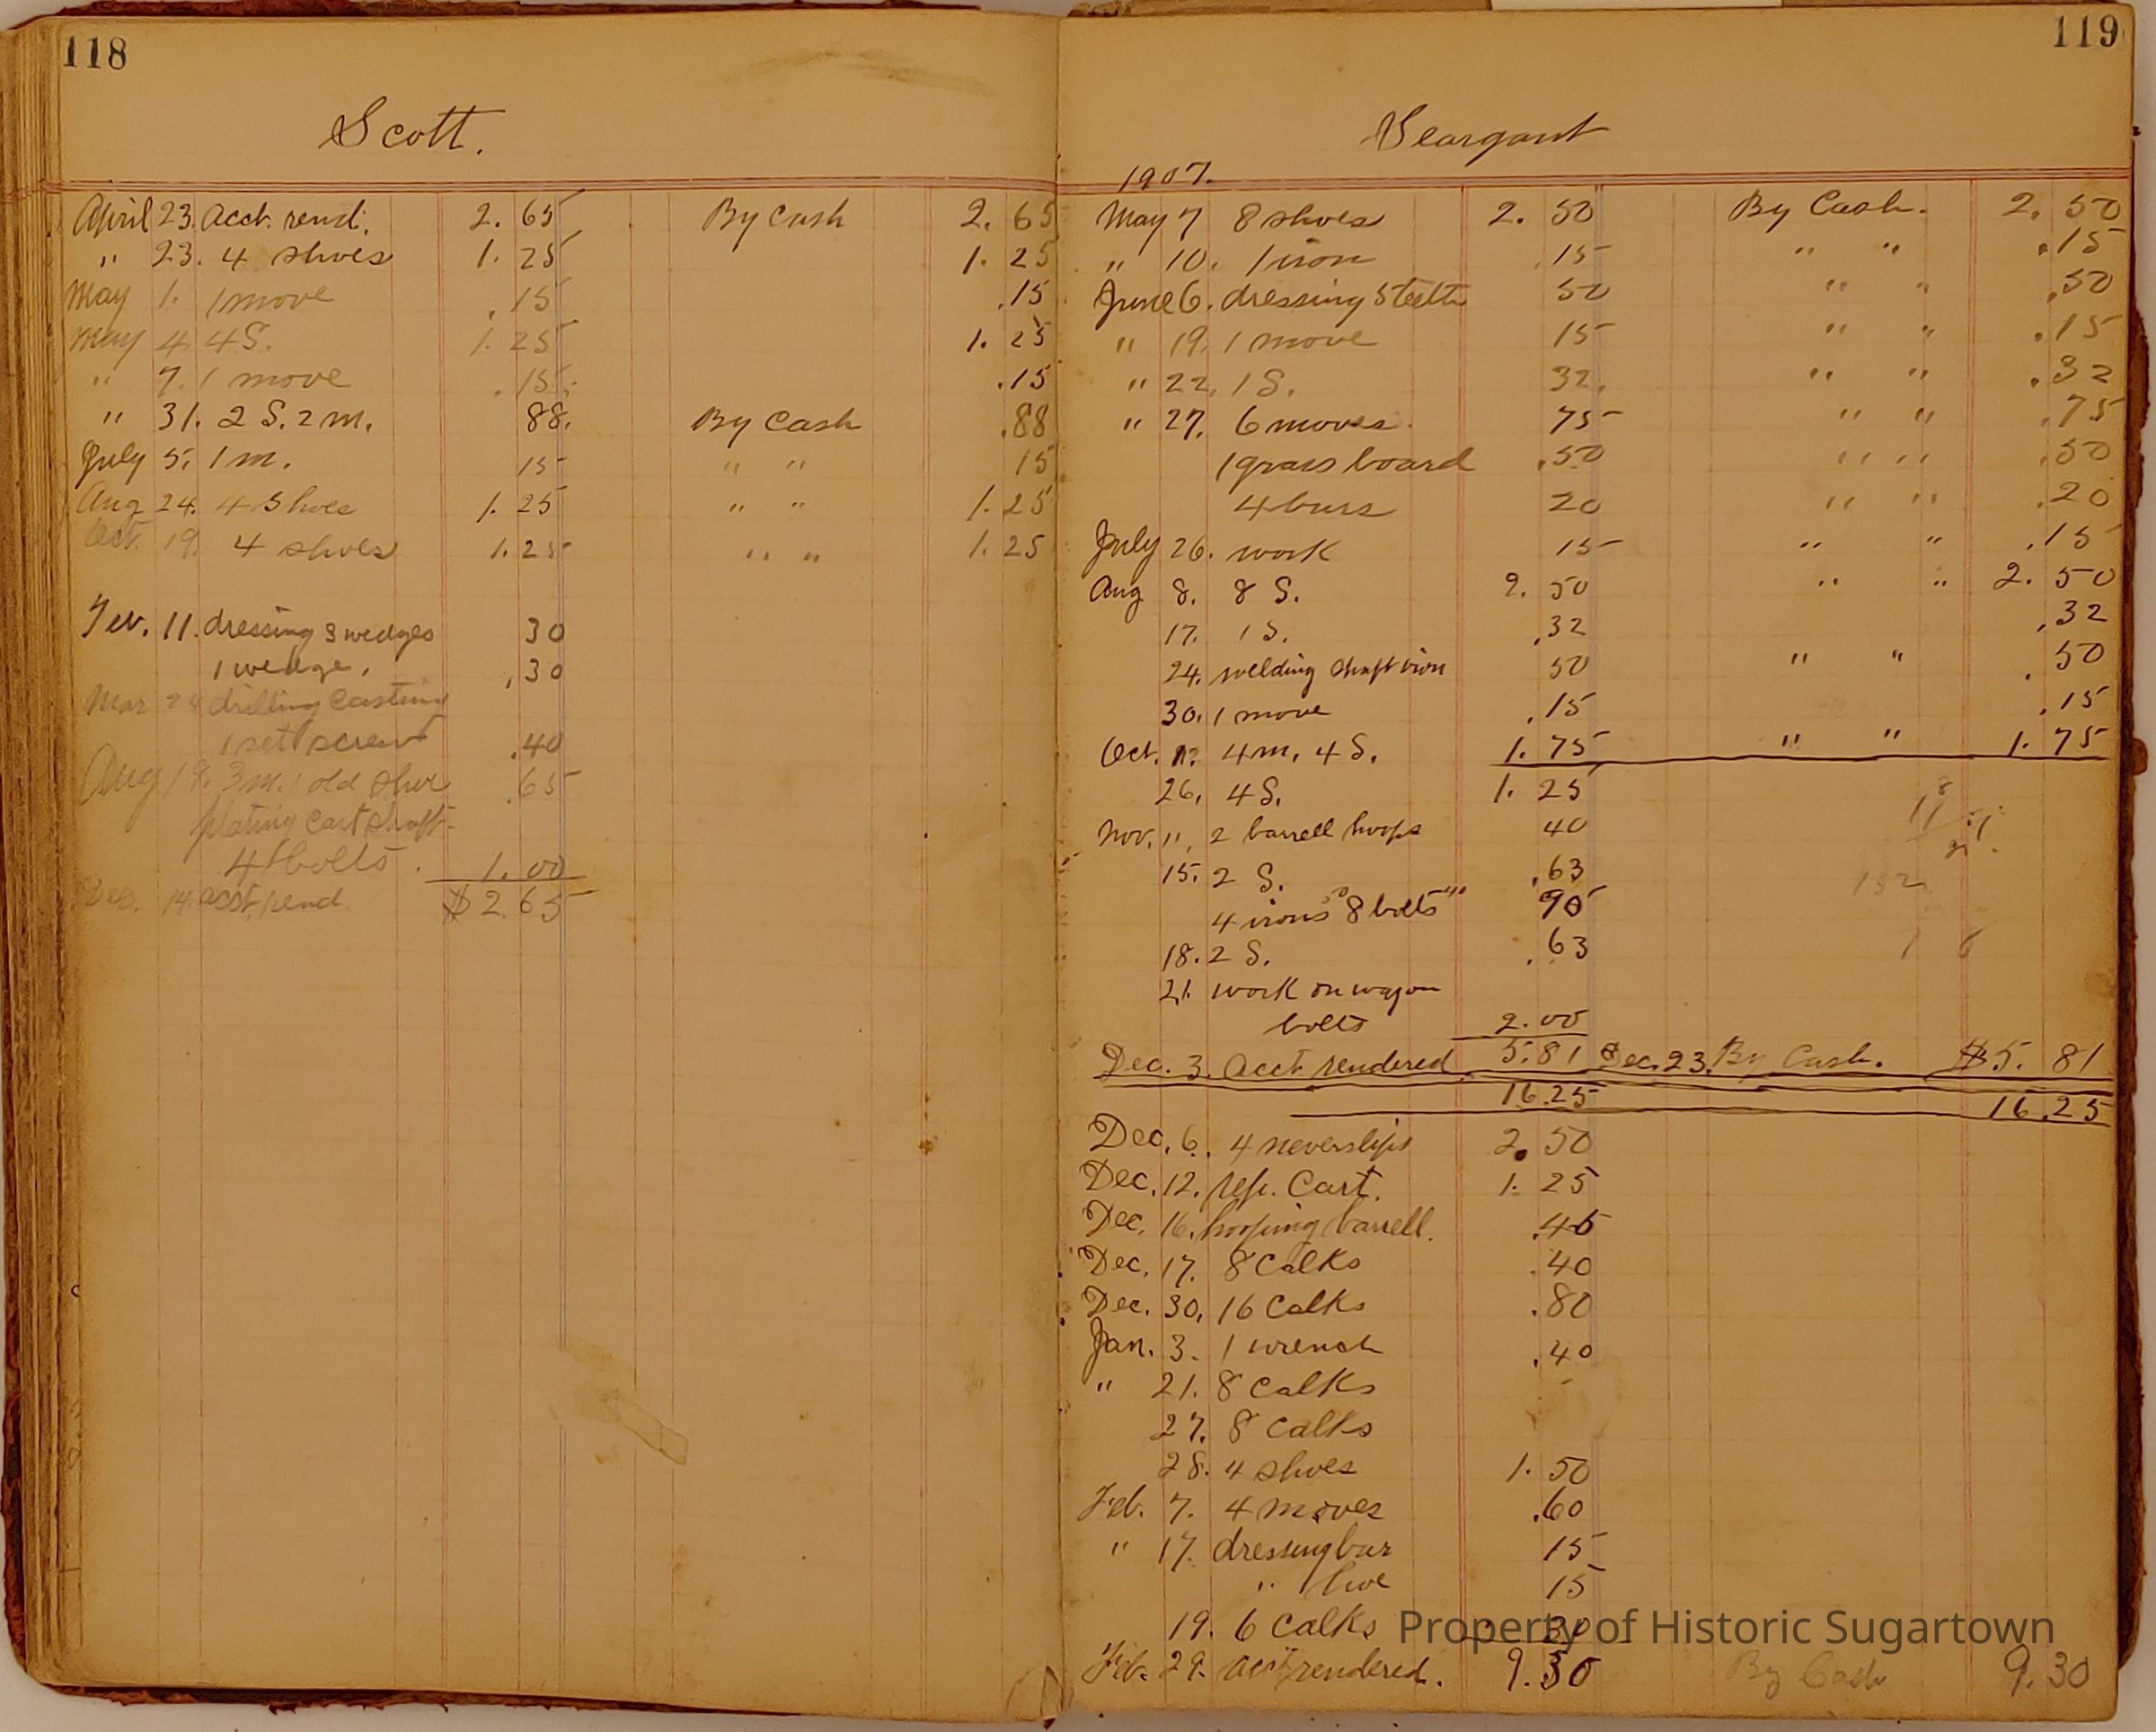 118
Scott.
April 23. Acct. rend. 2. 65 By Cash 2. 65
" 23. 4 shoes 1. 25 1. 25
May 1. 1 move .15 .15
May 4 4 S. 1. 25 1. 25
" 7. 1 move .15 .15
" 31. 2 S. 2 m. 88. By Cash .88
July 5. 1 m. 15 " " 15
Aug 24. 4 Shoes 1. 25 " " 1. 25
Oct. 19. 4 shoes 1. 25 " " 1. 25
Fev. 11. dressing 3 wedges 30
1 wedge. .30
Mar 24 drilling Casting
1 set screw .40
Aug 19. 3 m. 1 old shoe .65
plating Cart shaft
4 bolts. 1. 00
Dec. 14. acct. rend. $2.65
119
Seargant
1907.
May 7 8 shoes 2. 50 By Cash. 2. 50
" 10. 1 iron .15 " " .15
June 6. dressing 5 teeth 50 " " .50
" 19. 1 move 15 " " .15
" 22. 1 S. 32. " " .32
" 27. 6 moves. 75 " " .75
1 grass board .50 " " .50
4 burs 20 " " .20
July 26. work 15 " " .15
Aug 8. 8 S. 2. 50 " " 2. 50
17. 1 S. .32 .32
24. welding shaft iron 50 " " .50
30. 1 move .15 .15
Oct. 4 m. 4 S. 1. 75 " " 1. 75
26. 4 S. 1. 25
Nov. 11, 2 barrell hoops 40
15. 2 S. .63
4 irons 8 bolts 90
18. 2 S. .63
21. work on wagon
bolts 2.00
Dec. 3. Acct. rendered. 5.81 Dec. 23. By Cash. $5. 81
16.25 16.25
Dec. 6. 4 neverslips 2. 50
Dec. 12. rep. Cart. 1. 25
Dec. 16. hooping barrell. .45
Dec. 17. 8 Calks .40
Dec. 30. 16 Calks .80
Jan. 3. 1 wrench .40
" 21. 8 Calks
27. 8 Calks
28. 4 shoes 1. 50
Feb. 7. 4 moves .60
" 17. dressing bar 15
" 15
19. 6 Calks 30
Feb. 29. acct rendered. 9.30 By Cash 9.30
Property of Historic Sugartown